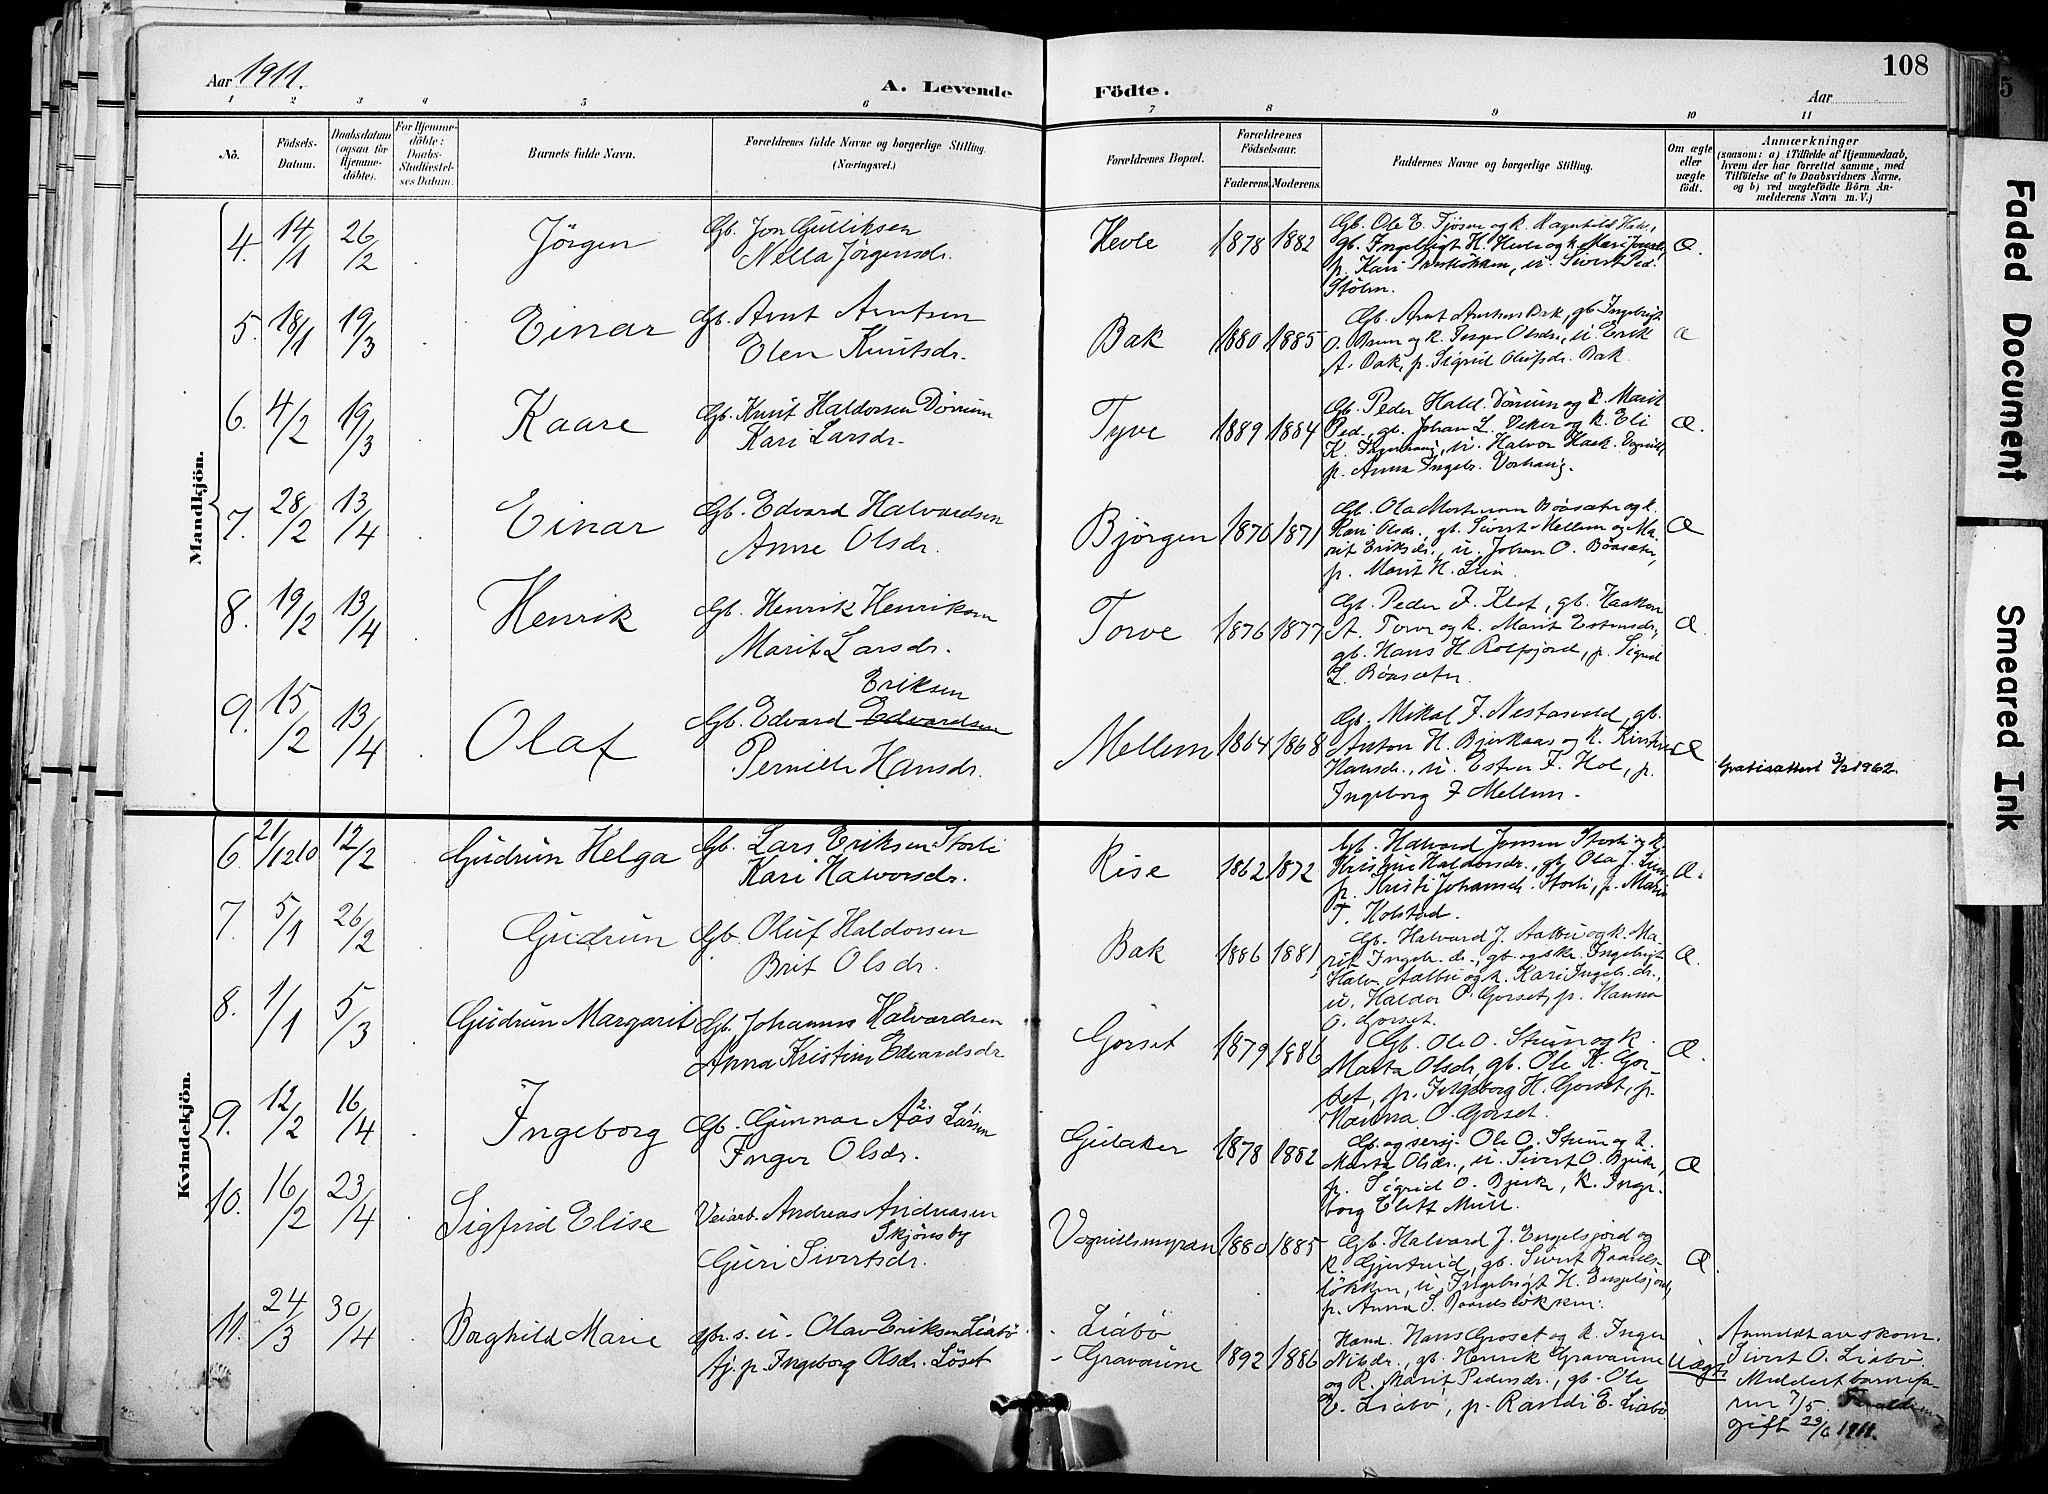 Aar 1911.
A. Levende Födte.
108
Aar
1 2 3 4 5 6 7 8 9 10 11
No.
Födsels-Datum.
Daabsdatum (ogsaa for Hjemme-döbte).
For Hjemme-döbte: Daabs-Stadfæstel-ses Datum.
Barnets fulde Navn.
Forældrenes fulde Navne og borgerlige Stilling. (Næringsvei.)
Forældrenes Bopæl.
Forældrenes Födselsaar.
Faderens. Moderens.
Faddernes Navne og borgerlige Stilling.
Om ægte eller uægte födt.
Anmærkninger
(saasom: a) i Tilfælde af Hjemmedaab,
hvem der har forrettet samme, med
Tilföielse af to Daabsvidners Navne,
og b) ved uægtefödte Börn An-
melderens Navn m. V.)
Mandkjön.
4. 14/1 26/2 Jörgen
Gb. Jon Gulliksen
Nella Jörgensdr.
Hevle 1878 1882
Gb. Ole E. Tjösen og k. Ragnhild Halv.,
gb. Ingebrigt H. Hevle og k. Mari Jonsdr,
p. Kari, u. Sivert Ped.
Stölen.
Æ.
5. 18/1 19/3 Einar
Gb. Arnt Arntsen
Olen Knutsdr.
Bak 1880 1885
Gb. Arnt Arntsen Bak, gb. Ingebrigt
O. Brun og k. Inger Olsdr., u. Erik
A. Bak, p. Sigrid Olufsdr. Bak.
Æ
6. 4/2 19/3 Kaare
Gb. Knut Haldorsen Dörrum
Kari Larsdr.
Tyve 1889 1884
Gb. Peder Hald. Dörrum og k. Marit
Ped., gb. Johan L. Veker og k. Eli
K. Fagerhaug, u. Halvor Haak. Vognill,
p. Anna Ingebr. Vorhaug.
Æ.
7. 28/2 13/4 Einar
Gb. Edvard Halvardsen
Anne Olsdr.
Björgen 1870 1871
Gb. Ola Mortensen Böasæter og k.
Kari Olsdr., gb. Sivert Mellem og Ma-
rit Eriksdr., u. Johan O. Böasæter,
p. Marit H. Lien.
Æ
8. 19/2 13/4 Henrik
Gb. Henrik Henriksen
Marit Larsdr.
Torve 1876 1877
Gb. Peder J. Klet, gb. Haakon
A. Torve og k. Marit Estensdr,
gb. Hans H. Rolfsjord, p. Sigrid
L. Böasæter.
Æ.
9. 15/2 13/4 Olaf
Eriksen
Gb. Edvard Edvardsen
Pernille Hansdr.
Mellem 1864 1868
Gb. Mikal J. Nestavold, gb.
Anton H. Bjerkaas og k. Kirsten
Hansdr., u. Esten F. Hol, p.
Ingeborg F Mellem.
Æ
Gratisattest 3/2 1962.
Kvindekjön.
6 21/12 10 12/2 Gudrun Helga
Gb. Lars Eriksen Storli
Kari Halvorsdr.
Rise 1862 1872
Gb. Halvard Jonsen Storli og k.
Kristine Haldorsdr., gb. Ola J. Lien,
p. Kristi Johansdr. Storli, p. Marie
T. Holstad.
Æ.
7. 5/1 26/2 Gudrun
Gb. Oluf Haldorsen
Brit Olsdr.
Bak 1886 1881
Gb. Halvard J. Aalbu og k. Ma-
rit Ingebr.dr., gb. og skr. Ingebrigt
Halv. Aalbu og k. Kari Ingebr.dr.,
u. Haldor O. Gorset, p. Hanna
O. Gorset.
Æ.
8. 1/1 5/3 Gudrun Margarit
Gb. Johannes Halvardsen
Anna Kristine Edvardsdr.
Gorset 1879 1886
Gb. Ole O. Stuen og k.
Marta Olsdr, gb. Ole K. Gor-
set, p. Ingeborg H. Gorset, p.
Hanna O. Gorset.
Æ.
9. 12/2 16/4 Ingeborg
Gb. Gunnar Aas 2 Larsen 1
Inger Olsdr.
Gulaker 1878 1882
Gb. og sersj. Ole O. Stuen og k.
Marta Olsdr., u. Sivert O. Bjerke,
p. Sigrid O. Bjerke, k. Inge-
borg Elett Mull.
Æ
10. 16/2 23/4 Sigfrid Elise
Veiarb. Andreas Andreasen
Skjönsby
Guri Sivertsdr.
Vognillsmyran 1880 1885
Gb. Halvard J. Engelsjord og
k. Gjertrud, gb. Sivert Baards-
løkken, u. Ingebrigt H. Engelsjord,
p. Anna S. Baardsløkken.
Æ.
11. 24/3 30/4 Borghild Marie
Gbr. s. u. Olav Eriksen Liabö
Tj. p. Ingeborg Olsdr. Löset
- Liabö
- Gravaune
1892 1886
Hand. Hans Groset og k. Inger
Nilsdr., gb. Henrik Gravaune
og k. Marit Pedersdr., gb. Ole
E. Liabö, p. Randi E. Liabö.
Uægte
Anmeldt av skom.
Sivert O. Liabö.
Meldt barnefa-
ren 7/5. Forældrene
gift 29/6 1911.
Faded Document
Smeared Ink
5